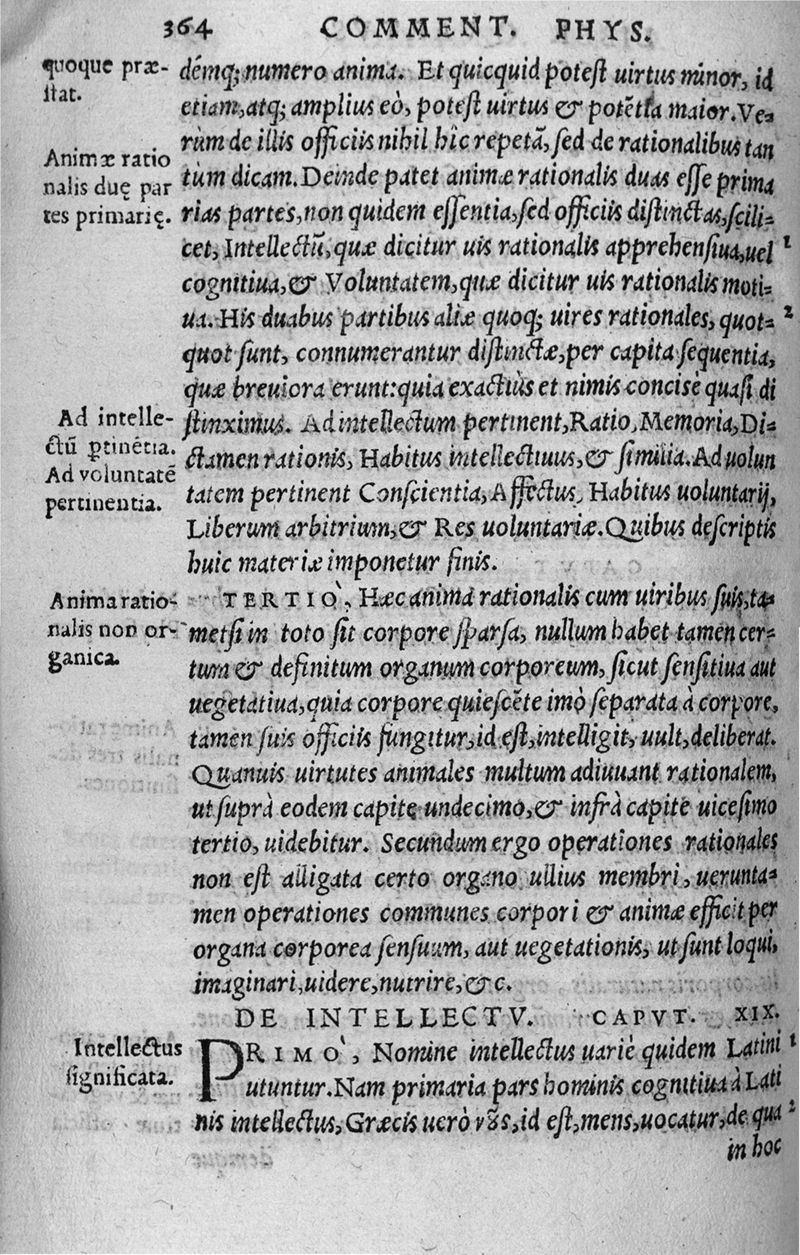 364 COMMENT. PHYS.
quoque præ-
stat.
démq; numero anima. Et quicquid potest uirtus minor, id
etiam, atq; amplius eò, potest uirtus & potẽtia maior. Ve-
rùm de illis officiis nihil hîc repetã, sed de rationalibus tan
Animæ ratio
nalis duę par
tes primarię.
tùm dicam. Deinde patet animæ rationalis duas esse prima
rias partes, non quidem essentia, sed officiis distinctas, scili-
cet, Intellectũ, quæ dicitur uis rationalis apprehensiua, uel 1
cognitiua, & Voluntatem, quæ dicitur uis rationalis moti-
ua. His duabus partibus aliæ quoq; uires rationales, quot- 2
quot sunt, connumerantur distinctæ, per capita sequentia,
quæ breuiora erunt: quia exactiùs et nimis concisè quasi di
Ad intelle-
ctũ ꝑtinẽtia.
Ad voluntatẽ
pertinentia.
stinximus. Ad intellectum pertinent, Ratio, Memoria, Di-
ctamen rationis, Habitus intellectiuus, & similia. Ad uolun
tatem pertinent Conscientia, Affectus, Habitus uoluntarij,
Liberum arbitrium, & Res uoluntariæ. Quibus descriptis
huic materiæ imponetur finis.
Anima ratio-
nalis non or-
ganica.
TERTIO`, Hæc anima rationalis cum uiribus suis, ta-
metsi in toto sit corpore sparsa, nullum habet tamen cer-
tum & definitum organum corporeum, sicut sensitiua aut
uegetatiua, quia corpore quiescẽte imò separata à corpore,
tamen suis officiis fungitur, id est, intelligit, uult, deliberat.
Quanuis uirtutes animales multum adiuuant rationalem,
ut suprà eodem capite undecimo, & infrà capite uicesimo
tertio, uidebitur. Secundum ergo operationes rationales
non est alligata certo organo ullius membri, uerunta-
men operationes communes corpori & animæ efficit per
organa corporea sensuum, aut uegetationis, ut sunt loqui,
imaginari, uidere, nutrire, &c.
DE INTELLECTV. CAPVT. XIX.
Intellectus
significata.
PRIMO`, Nomine intellectus uariè quidem Latini 1
utuntur. Nam primaria pars hominis cognitiua à Lati
nis intellectus, Græcis uerò νȣ̃ς, id est, mens, uocatur, de qua 2
in hoc